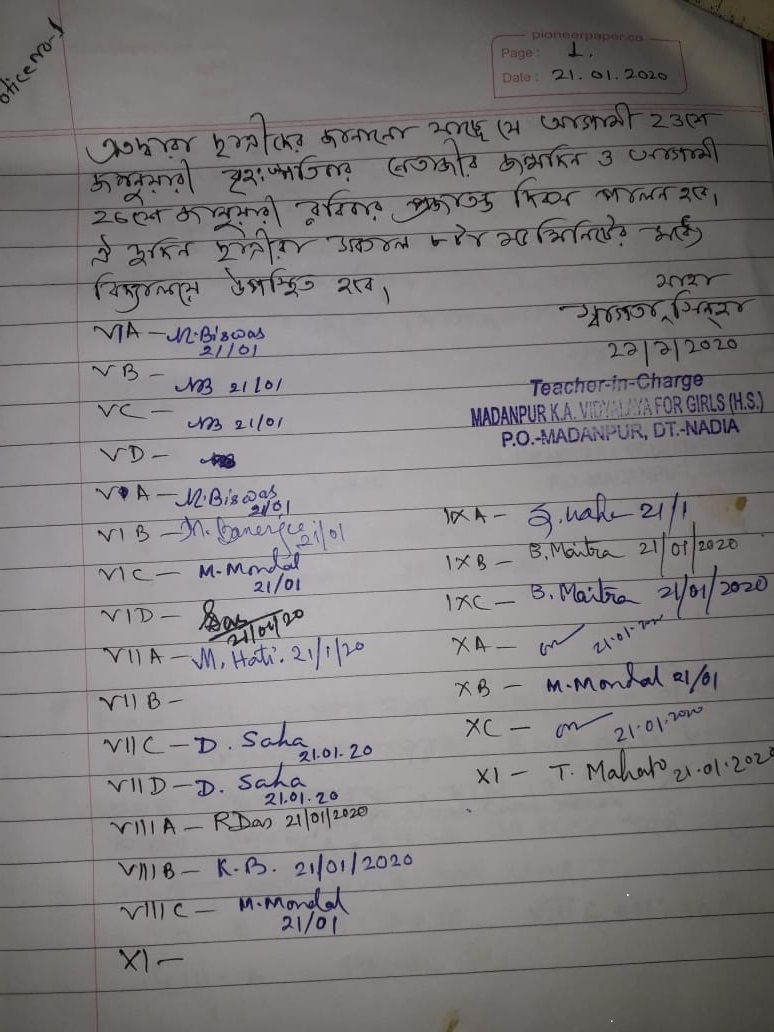 oticeNo-1
pioneerpaper.co
Page: 1.
Date: 21.01.2020
এতদ্বারা ছাত্রীদের জানানো যাচ্ছে যে আগামী 23শে
জানুয়ারী বৃহঃস্পতিবার নেতাজীর জন্মদিন ও আগামী
26শে জানুয়ারী রবিবার প্রজাতন্ত্র দিবস পালন হবে।
ঐ দুদিন ছাত্রীরা সকাল ৮টা ৪৫ মিনিটের মধ্যে
বিদ্যালয়ে উপস্থিত হবে।
সাহা
২১/১/2020
Teacher-in-Charge
MADANPUR K.A. VIDYALAYA FOR GIRLS (H.S.)
P.O.-MADANPUR, DT.-NADIA
VA - M.Biswas
21/01
VB - MB 21/01
VC - MB 21/01
VD - MB
VIA - M.Biswas
21/01
VIB - M. Banerjee 21/01
VIC - M. Mondal
21/01
VID - Das
21/01/20
VIIA - M. Hati. 21/1/20
VIIB -
VIIC - D. Saha
21.01.20
VIID - D. Saha
21.01.20
VIIIA - R.Das 21/01/2020
VIIIB - K.B. 21/01/2020
VIIIC - M.Mondal
21/01
XI -
IXA - 21/1
IXB - B. Maitra 21/01/2020
IXC - B. Maitra 21/01/2020
XA - 21.01.2020
XB - M.Mondal 21/01
XC - 21.01.2020
XI - T. Mahato 21.01.2020